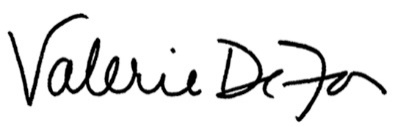 Valerie DeFor